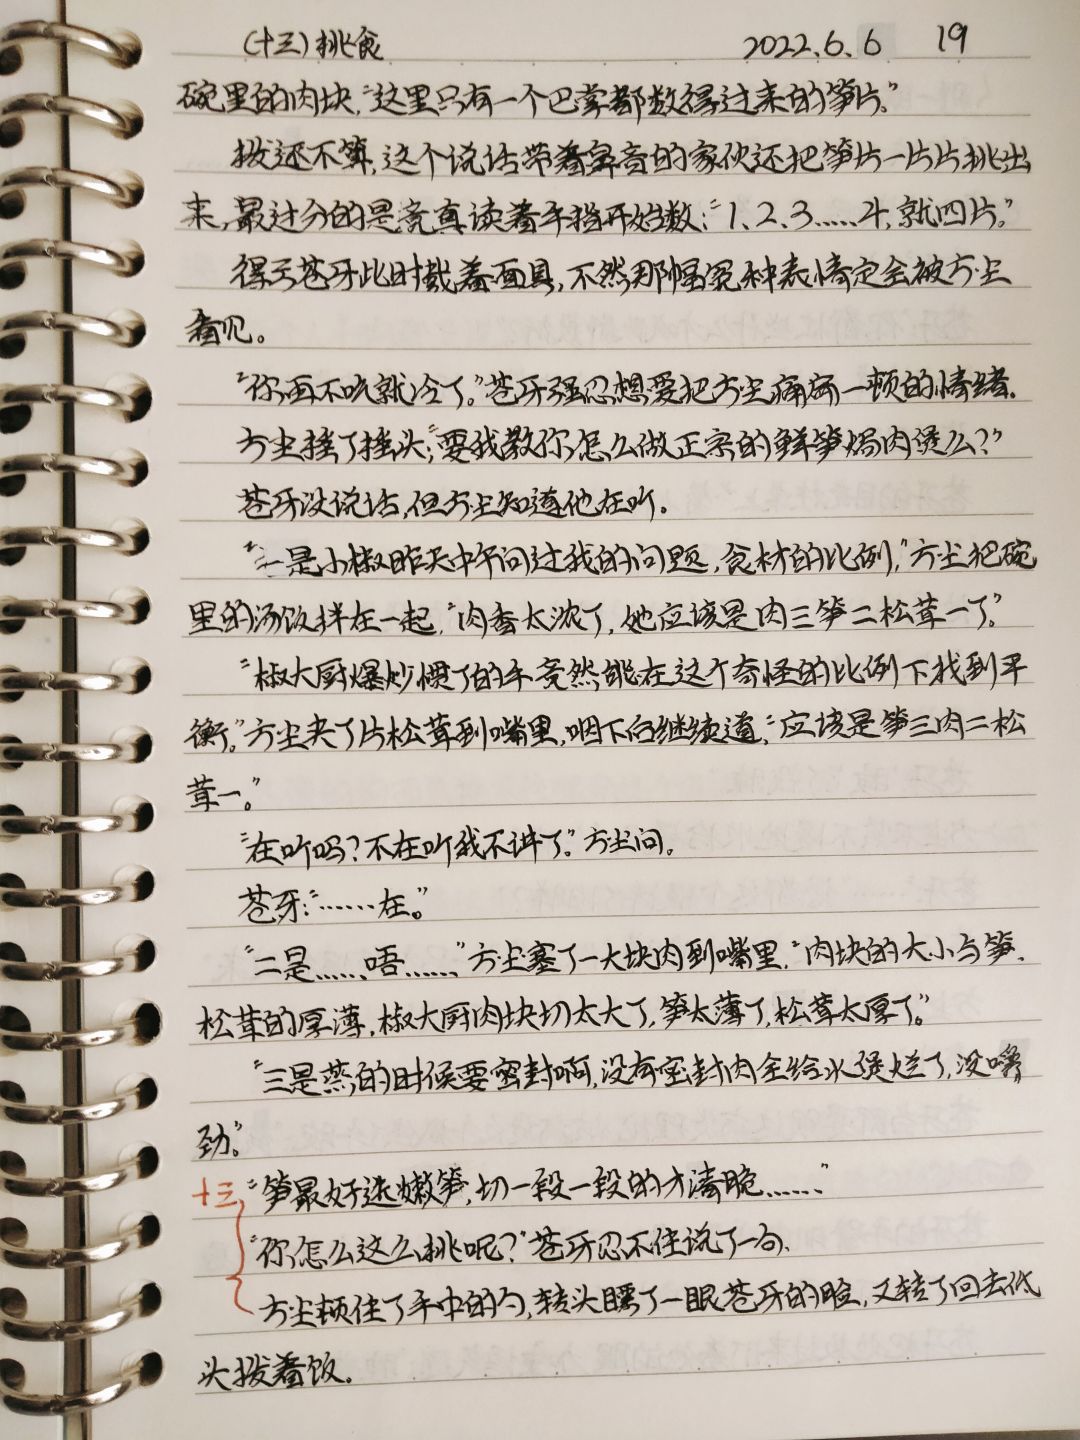 (十三)挑食 2022.6.6 19
碗里的肉块,“这里只有一个巴掌都数得过来的笋片。”
拨还不算,这个说话带着鼻音的家伙还把笋片一片片挑出
来,最过分的是竟真读着手指开始数:“1、2、3……4,就四片。”
得亏苍牙此时戴着面具,不然那幅冤种表情定会被方尘
看见。
“你再不吃就冷了。”苍牙强忍想要把方尘痛扁一顿的情绪.
方尘摇了摇头:“要我教你怎么做正宗的鲜笋焗肉煲么?”
苍牙没说话,但方尘知道他在听.
“一是小椒昨天中午问过我的问题,食材的比例,”方尘把碗
里的汤饭拌在一起,“肉香太浓了,她应该是肉三笋二松茸一了。”
“椒大厨爆炒惯了的手竟然能在这个奇怪的比例下找到平
衡。”方尘夹了片松茸到嘴里,咽下后继续道:“应该是笋三肉二松
茸一。”
“在听吗?不在听我不讲了。”方尘问.
苍牙:“……在。”
“二是……唔……”方尘塞了一大块肉到嘴里,“肉块的大小与笋、
松茸的厚薄,椒大厨肉块切太大了,笋太薄了,松茸太厚了。”
“三是蒸的时候要密封啊,没有密封肉全给水煲烂了,没嚼
劲。”
十三 “笋最好选嫩笋,切一段一段的才清脆……”
“你怎么这么挑呢?”苍牙忍不住说了一句.
方尘顿住了手中的勺,转头瞟了一眼苍牙的脸,又转了回去低
头拨着饭.